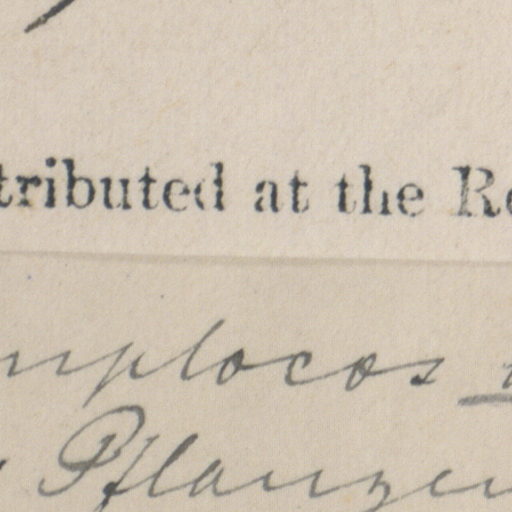 tributed at the Re
mplocos
Pflanzen